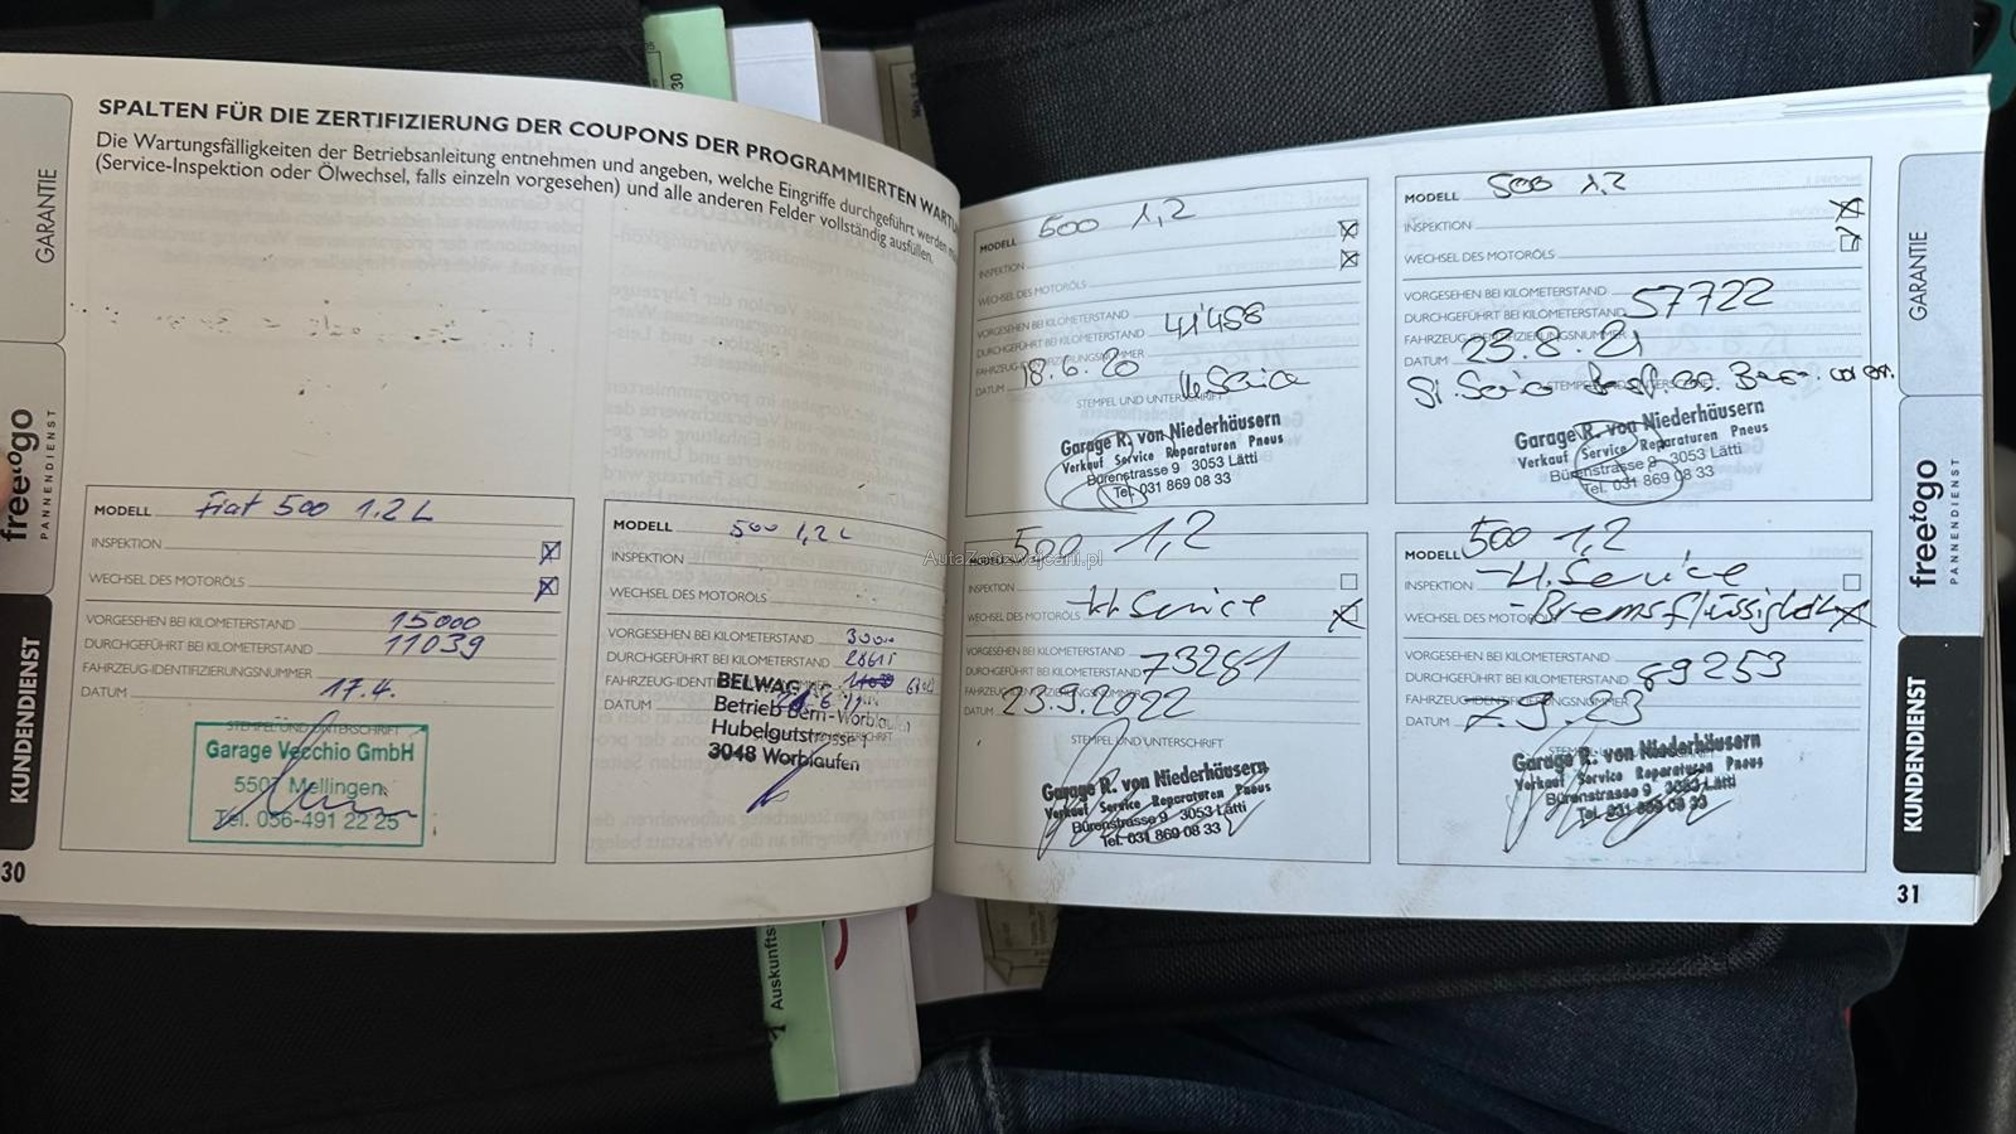 GARANTIE
freetogo
PANNENDIENST
KUNDENDIENST
30
SPALTEN FÜR DIE ZERTIFIZIERUNG DER COUPONS DER PROGRAMMIERTEN
Die Wartungsfälligkeiten der Betriebsanleitung entnehmen und angeben, welche Eingriffe durchgeführt werden
(Service-Inspektion oder Ölwechsel, falls einzeln vorgesehen) und alle anderen Felder vollständig ausfüllen.
MODELL Fiat 500 1.2 L
INSPEKTION
WECHSEL DES MOTORÖLS
VORGESEHEN BEI KILOMETERSTAND 15000
DURCHGEFÜHRT BEI KILOMETERSTAND 11039
FAHRZEUG-IDENTIFIZIERUNGSNUMMER
DATUM 17.4.
STEMPEL UND UNTERSCHRIFT
Garage Vecchio GmbH
5507 Mellingen
Tel. 056-491 22 25
MODELL 500 1,2 L
INSPEKTION
WECHSEL DES MOTORÖLS
VORGESEHEN BEI KILOMETERSTAND
DURCHGEFÜHRT BEI KILOMETERSTAND
DATUM
BELWAG AG
Betrieb Bern-Worblaufen
Hubelgutstrasse
3048 Worblaufen
MODELL 500 1,2
INSPEKTION
WECHSEL DES MOTORÖLS
VORGESEHEN BEI KILOMETERSTAND
DURCHGEFÜHRT BEI KILOMETERSTAND 41'458
FAHRZEUG-IDENTIFIZIERUNGSNUMMER
DATUM 18.6.20
STEMPEL UND UNTERSCHRIFT
Garage R. von Niederhäusern
Verkauf Service Reparaturen Pneus
Bürenstrasse 9 3053 Lätti
Tel. 031 869 08 33
MODELL 500 1,2
INSPEKTION
WECHSEL DES MOTORÖLS
VORGESEHEN BEI KILOMETERSTAND
DURCHGEFÜHRT BEI KILOMETERSTAND 57722
FAHRZEUG-IDENTIFIZIERUNGSNUMMER
DATUM 23.8.21
Garage R. von Niederhäusern
Verkauf Service Reparaturen Pneus
Bürenstrasse 9 3053 Lätti
Tel. 031 869 08 33
500 1,2
INSPEKTION
WECHSEL DES MOTORÖLS Service
VORGESEHEN BEI KILOMETERSTAND
DURCHGEFÜHRT BEI KILOMETERSTAND 73281
DATUM 23.9.2022
STEMPEL UND UNTERSCHRIFT
Garage R. von Niederhäusern
Verkauf Service Reparaturen Pneus
Bürenstrasse 9 3053 Lätti
Tel. 031 869 08 33
MODELL 500 1,2
INSPEKTION Service
WECHSEL DES Bremsflüssigkeit
VORGESEHEN BEI KILOMETERSTAND
DURCHGEFÜHRT BEI KILOMETERSTAND 89253
FAHRZEUG-IDENTIFIZIERUNGSNUMMER
DATUM 7.9.23
Garage R. von Niederhäusern
Verkauf Service Reparaturen Pneus
Bürenstrasse 9 3053 Lätti
Tel. 031 869 08 33
GARANTIE
freetogo
PANNENDIENST
KUNDENDIENST
31
30
AutaZeSzwajcarii.pl